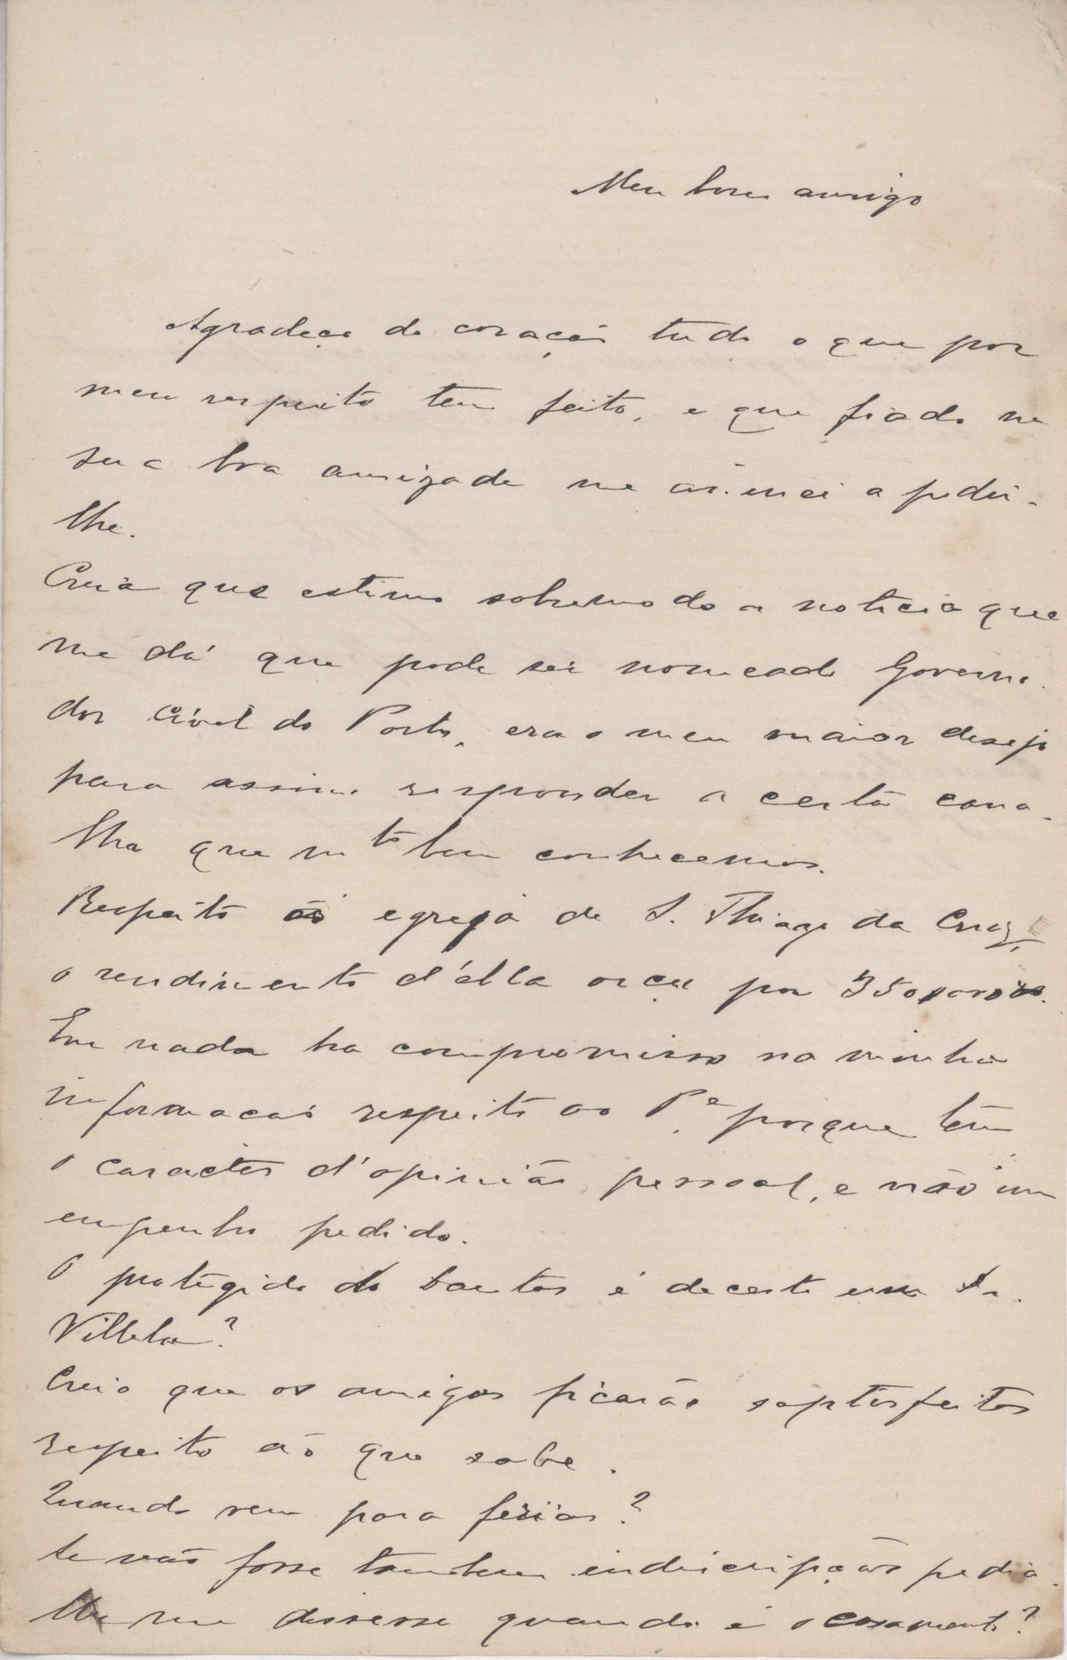 Meu bom amigo
Agradeço de coração tudo o que por
meu respeito tem feito, e que fiado na
sua boa amizade me animei a pedir-
lhe.
Creia que estimo sobremodo a noticia que
me dá que pode ser nomeado Governa-
dor Civil do Porto, era o meu maior desejo
para assim responder a certa cana-
lha que mto bem conhecemos.
Respeito á egreja de S. Thiago da Cruz,
o rendimento d'ella orça por
Em nada ha compromisso na minha
informacão respeito ao Pe. porque tem
o caracter d'opinião pessoal, e não um
empenho pedido.
O protegido do Santos é decerto um Sr.
Villela?
Creio que os amigos ficarão saptisfeitos
respeito ao que sabe.
Quando vem para ferias?
Se não fosse tambem indiscripção pedia-
lhe me dissesse quando é o casamento?